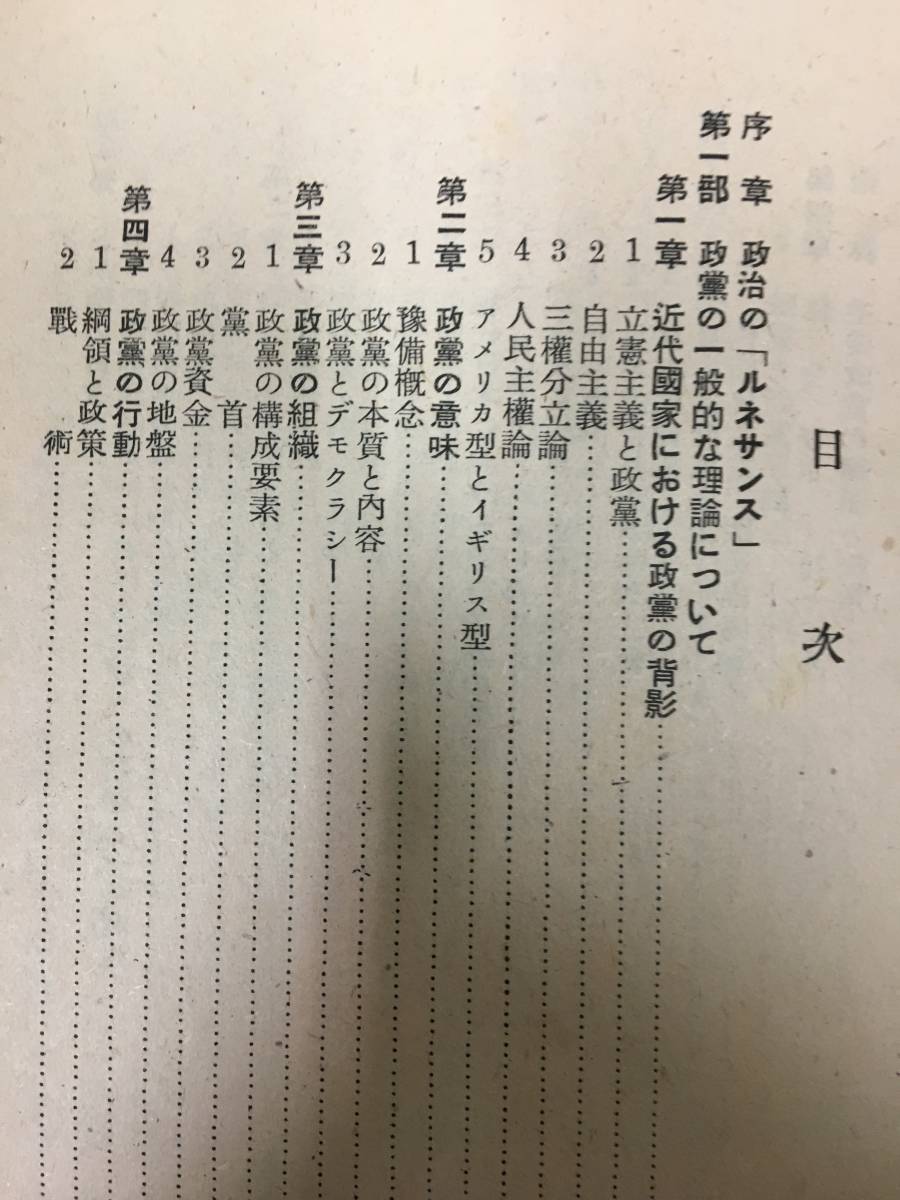 目次
序章 政治の「ルネサンス」
第一部 政黨の一般的な理論について
第一章 近代國家における政黨の背影
1 立憲主義と政黨
2 自由主義
3 三權分立論
4 人民主權論
5 アメリカ型とイギリス型
第二章 政黨の意味
1 豫備概念
2 政黨の本質と內容
3 政黨とデモクラシー
第三章 政黨の組織
1 政黨の構成要素
2 黨首
3 政黨資金
4 政黨の地盤
第四章 政黨の行動
1 綱領と政策
2 戰術